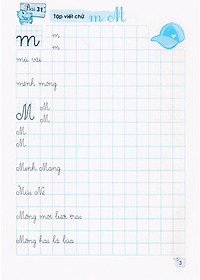 Bài 31
Tập viết chữ m M
m m
m
mũ vải
mênh mông
M M
M
M
M
Minh Mạng
Mũi Né
Mống mới lưa
Mống hai lá lúa
3